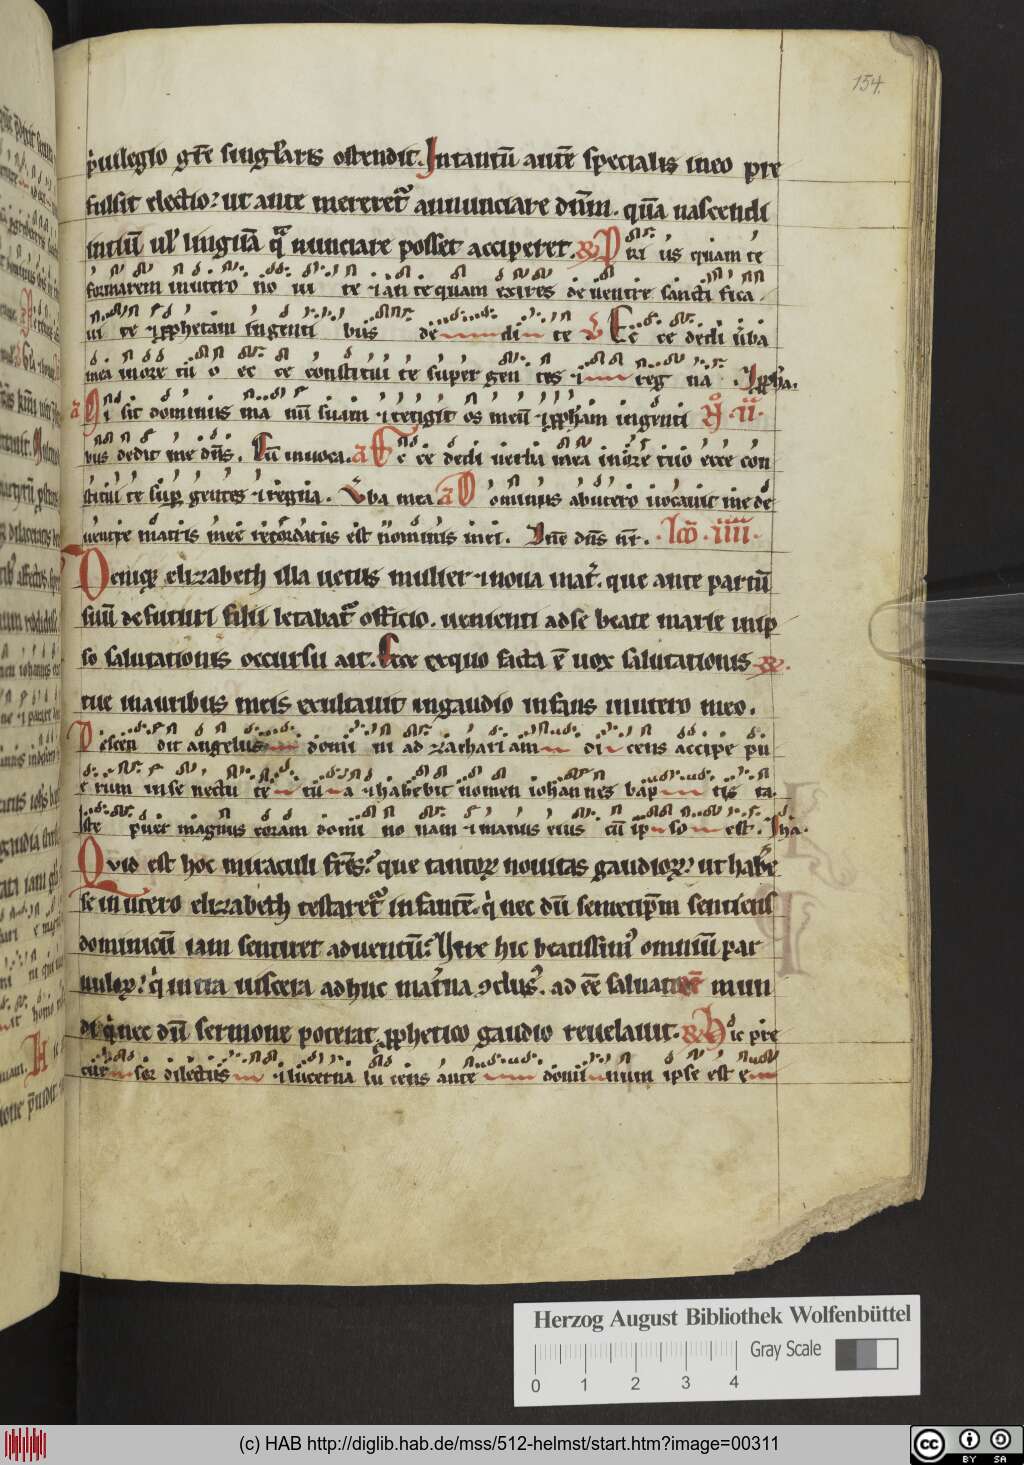 154.
p̍uilegio gr̄e singl̓aris ostendit. Intantū autē specialis ineo pre
fulsit electio: ut ante mereret᷑ annunciare dn̄m. quā nascendi
initiū ul̓ linguā qͣ nunciare posset acciperet. R Pri us quam te
formarem inutero no ui te ⁊ an te quam exires de uentre sancti fica
ui te ⁊ ꝓphetam in genti bus de di te V Ec ce dedi ūba
mea inore tu o ec ce constitui te super gen tes ⁊ reg na . Ꝓpha.
a Mi sit dominus ma nū suam ⁊ tetigit os meū ⁊ ꝓpham in genti N̊ . II .
bus dedit me dn̄s. Cū inuoca. a Ec ce dedi uerba mea inore tuo ecce con
stitui te suꝑ gentes ⁊ regna. V̄ba mea a Dominus abutero uocauit me de
uentre matris mee recordatus est nominis mei. In̄e dn̄s nr̄. lc̄o . IIII .
Deniqꝫ elizabeth illa uetus mulier ⁊ noua mat̓. que ante partū
suū de futuri filii letabat᷑ officio. uenienti adse beate marie imp
so salutationis occursu ait. Ecce exquo facta ē uox salutationis R.
tue inauribus meis exultauit ingaudio infans inutero meo.
Descen dit angelus domi ni ad zachari am di cens accipe pu
e rum inse nectu te tu a ⁊ habebit nomen iohannes bap tis ta.
Iste puer magnus coram domi no nam ⁊ manus eius cū ip so est. Iha.
Quid est hoc miraculi fr̄es? que tantoꝝ nouitas gaudioꝝ? ut hab̓e
se in utero elizabeth testaret᷑ infantē. q̍ nec dū semetip̄m sentiens
dominicū iam sentiret aduentū? Iste hic beatissim᷒ omniū par
uuloꝝ! q̍ intra uiscera adhuc mat̓na ꝯclus᷒. ad eē saluat mun
di q̍ nec dū sermone poterat ꝓphetico gaudio reuelauit. R Hic pre
cur sor dilectus ⁊ lucerna lu cens ante domi num ipse est e
Herzog August Bibliothek Wolfenbüttel
Gray Scale
0 1 2 3 4
(c) HAB http://diglib.hab.de/mss/512-helmst/start.htm?image=00311
cc BY SA